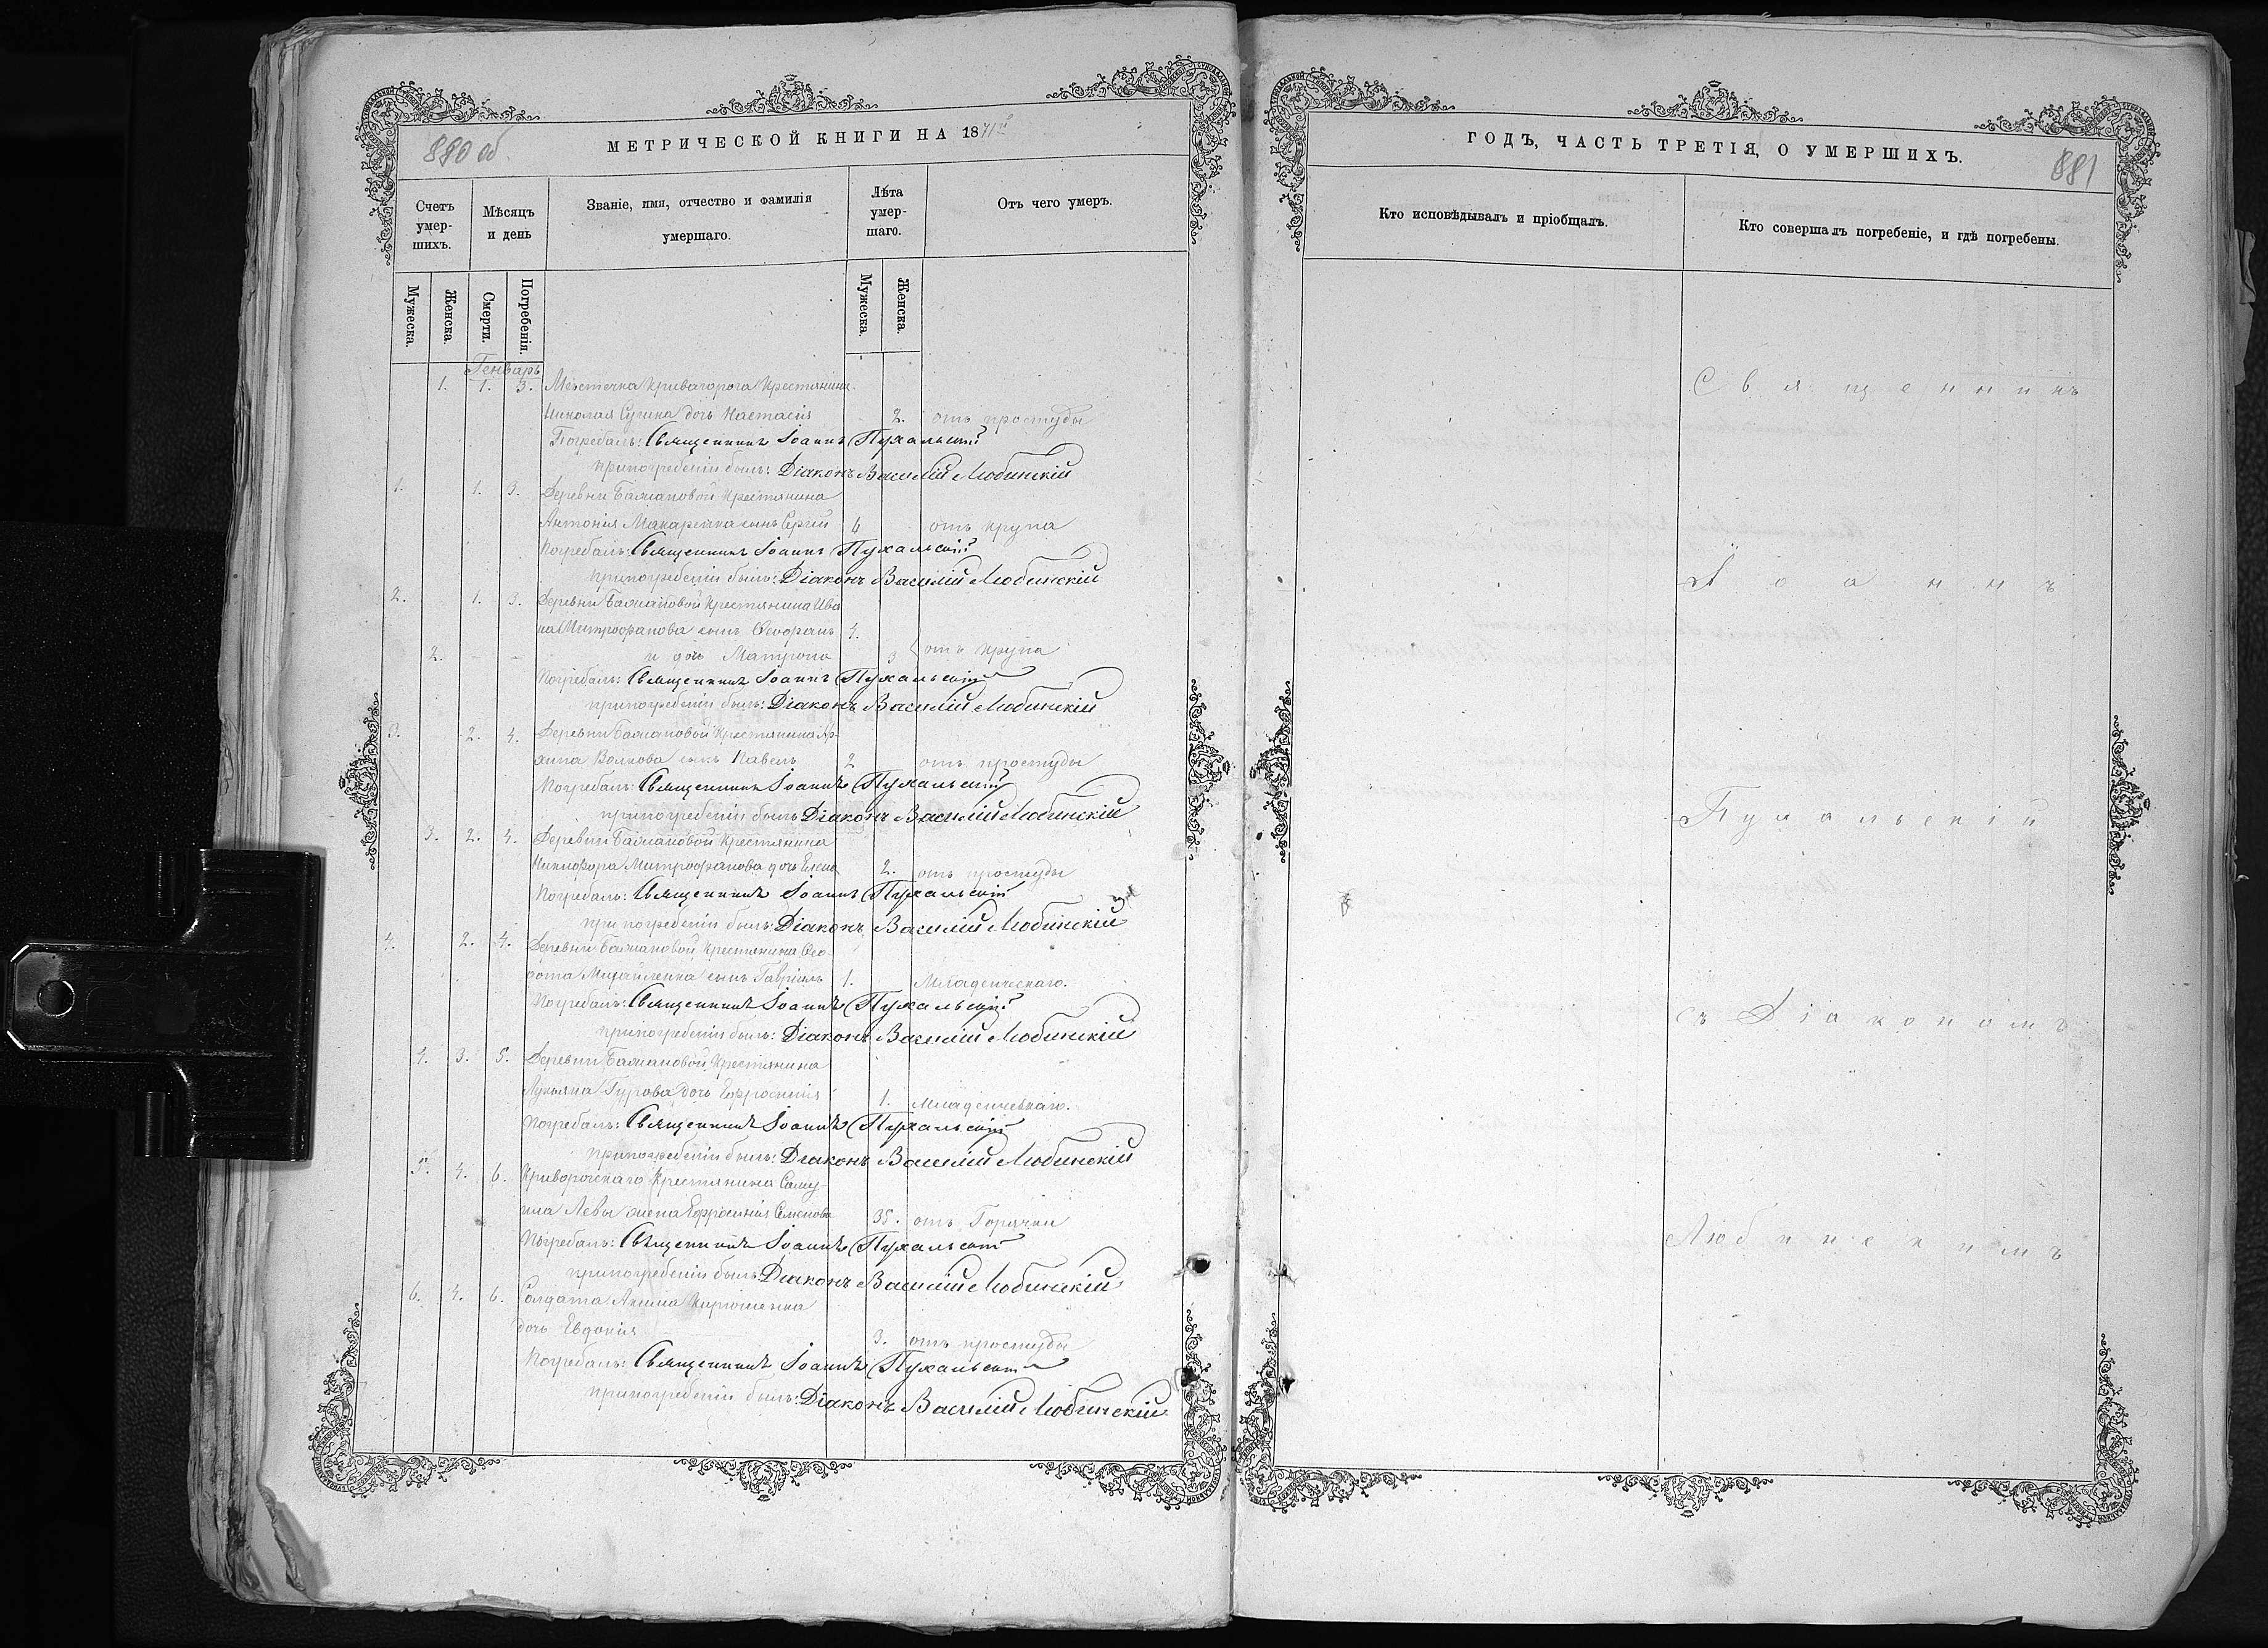 880 об
МЕТРИЧЕСКОЙ КНИГИ НА 1871й
Счетъ умер-шихъ.
Мѣсяцъ и день
Званіе, имя, отчество и фамилія умершаго.
Лѣта умер-шаго.
Отъ чего умеръ.
Мужеска.
Женска.
Смерти.
Погребенія.
Мужеска.
Женска.
Генварь
1. 1. 3. Мѣстечка Кривагорога Крестянина
Николая дочь Настасія 2. отъ простуды
Погребалъ: Священникъ Іоаннъ Пухальскій
При погребеніи былъ: Діаконъ Василій Любинскій
1. 1. 3. Деревни Крестянина
Антонія Макаренка сынъ Сергій 6 отъ крупа
Погребалъ: Священникъ Іоаннъ Пухальскій
При погребеніи былъ: Діаконъ Василій Любинскій
2. 1. 3. Деревни Крестянина Ива
на Митрофанова сынъ Ѳеофанъ 4.
2. - - и дочь Матрона 3 отъ крупа
Погребалъ: Священникъ Іоаннъ Пухальскій
при погребеніи былъ: Діаконъ Василій Любинскій
3. 2. 4. Деревни Крестянина Ар-
хипа Волкова сынъ Павелъ 2 отъ простуды
Погребалъ: Священникъ Іоаннъ Пухальскій
при погребеніи былъ Діаконъ Василій Любинскій
3. 2. 4. Деревни Крестянина
Никифора Митрофанова дочь Елена 2. отъ простуды
Погребалъ: Священникъ Іоаннъ Пухальскій
при погребеніи былъ: Діаконъ Василій Любинскій
4. 2. 4. Деревни Крестянина Ѳео-
дота Михайленка сынъ Гавріилъ 1. Младенческаго.
Погребалъ: Священникъ Іоаннъ Пухальскій
при погребеніи былъ: Діаконъ Василій Любинскій
4. 3. 5. Деревни Крестянина
Лукьяна Гурова дочь Ефросинія 1. Младенческаго.
Погребалъ: Священникъ Іоаннъ Пухальскій
При погребеніи былъ: Діаконъ Василій Любинскій
5. 4. 6. Криворожскаго Крестянина Саму-
ила Левы жена Ефросинія Семенова 35. отъ Горячки
Погребалъ: Священникъ Іоаннъ Пухальскій
при погребеніи былъ Діаконъ Василій Любинскій
6. 4. 6. Солдата Акима
дочь Евдокія 3. отъ простуды
Погребалъ: Священникъ Іоаннъ Пухальскій
При погребеніи былъ: Діаконъ Василій Любинскій
ГОДЪ, ЧАСТЬ ТРЕТІЯ, О УМЕРШИХЪ.
881
Кто исповѣдывалъ и пріобщалъ.
Кто совершалъ погребеніе, и гдѣ погребены.
Священникъ
Іоаннъ
Пухальскій
съ Діакономъ
Любинскимъ